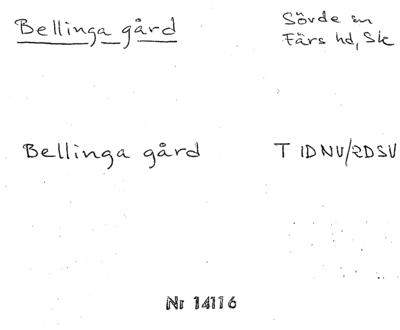 Bellinga gård
Sövde sn
Färs hd, Sk
Bellinga gård T 1DNV/2DSV
Nr 14116